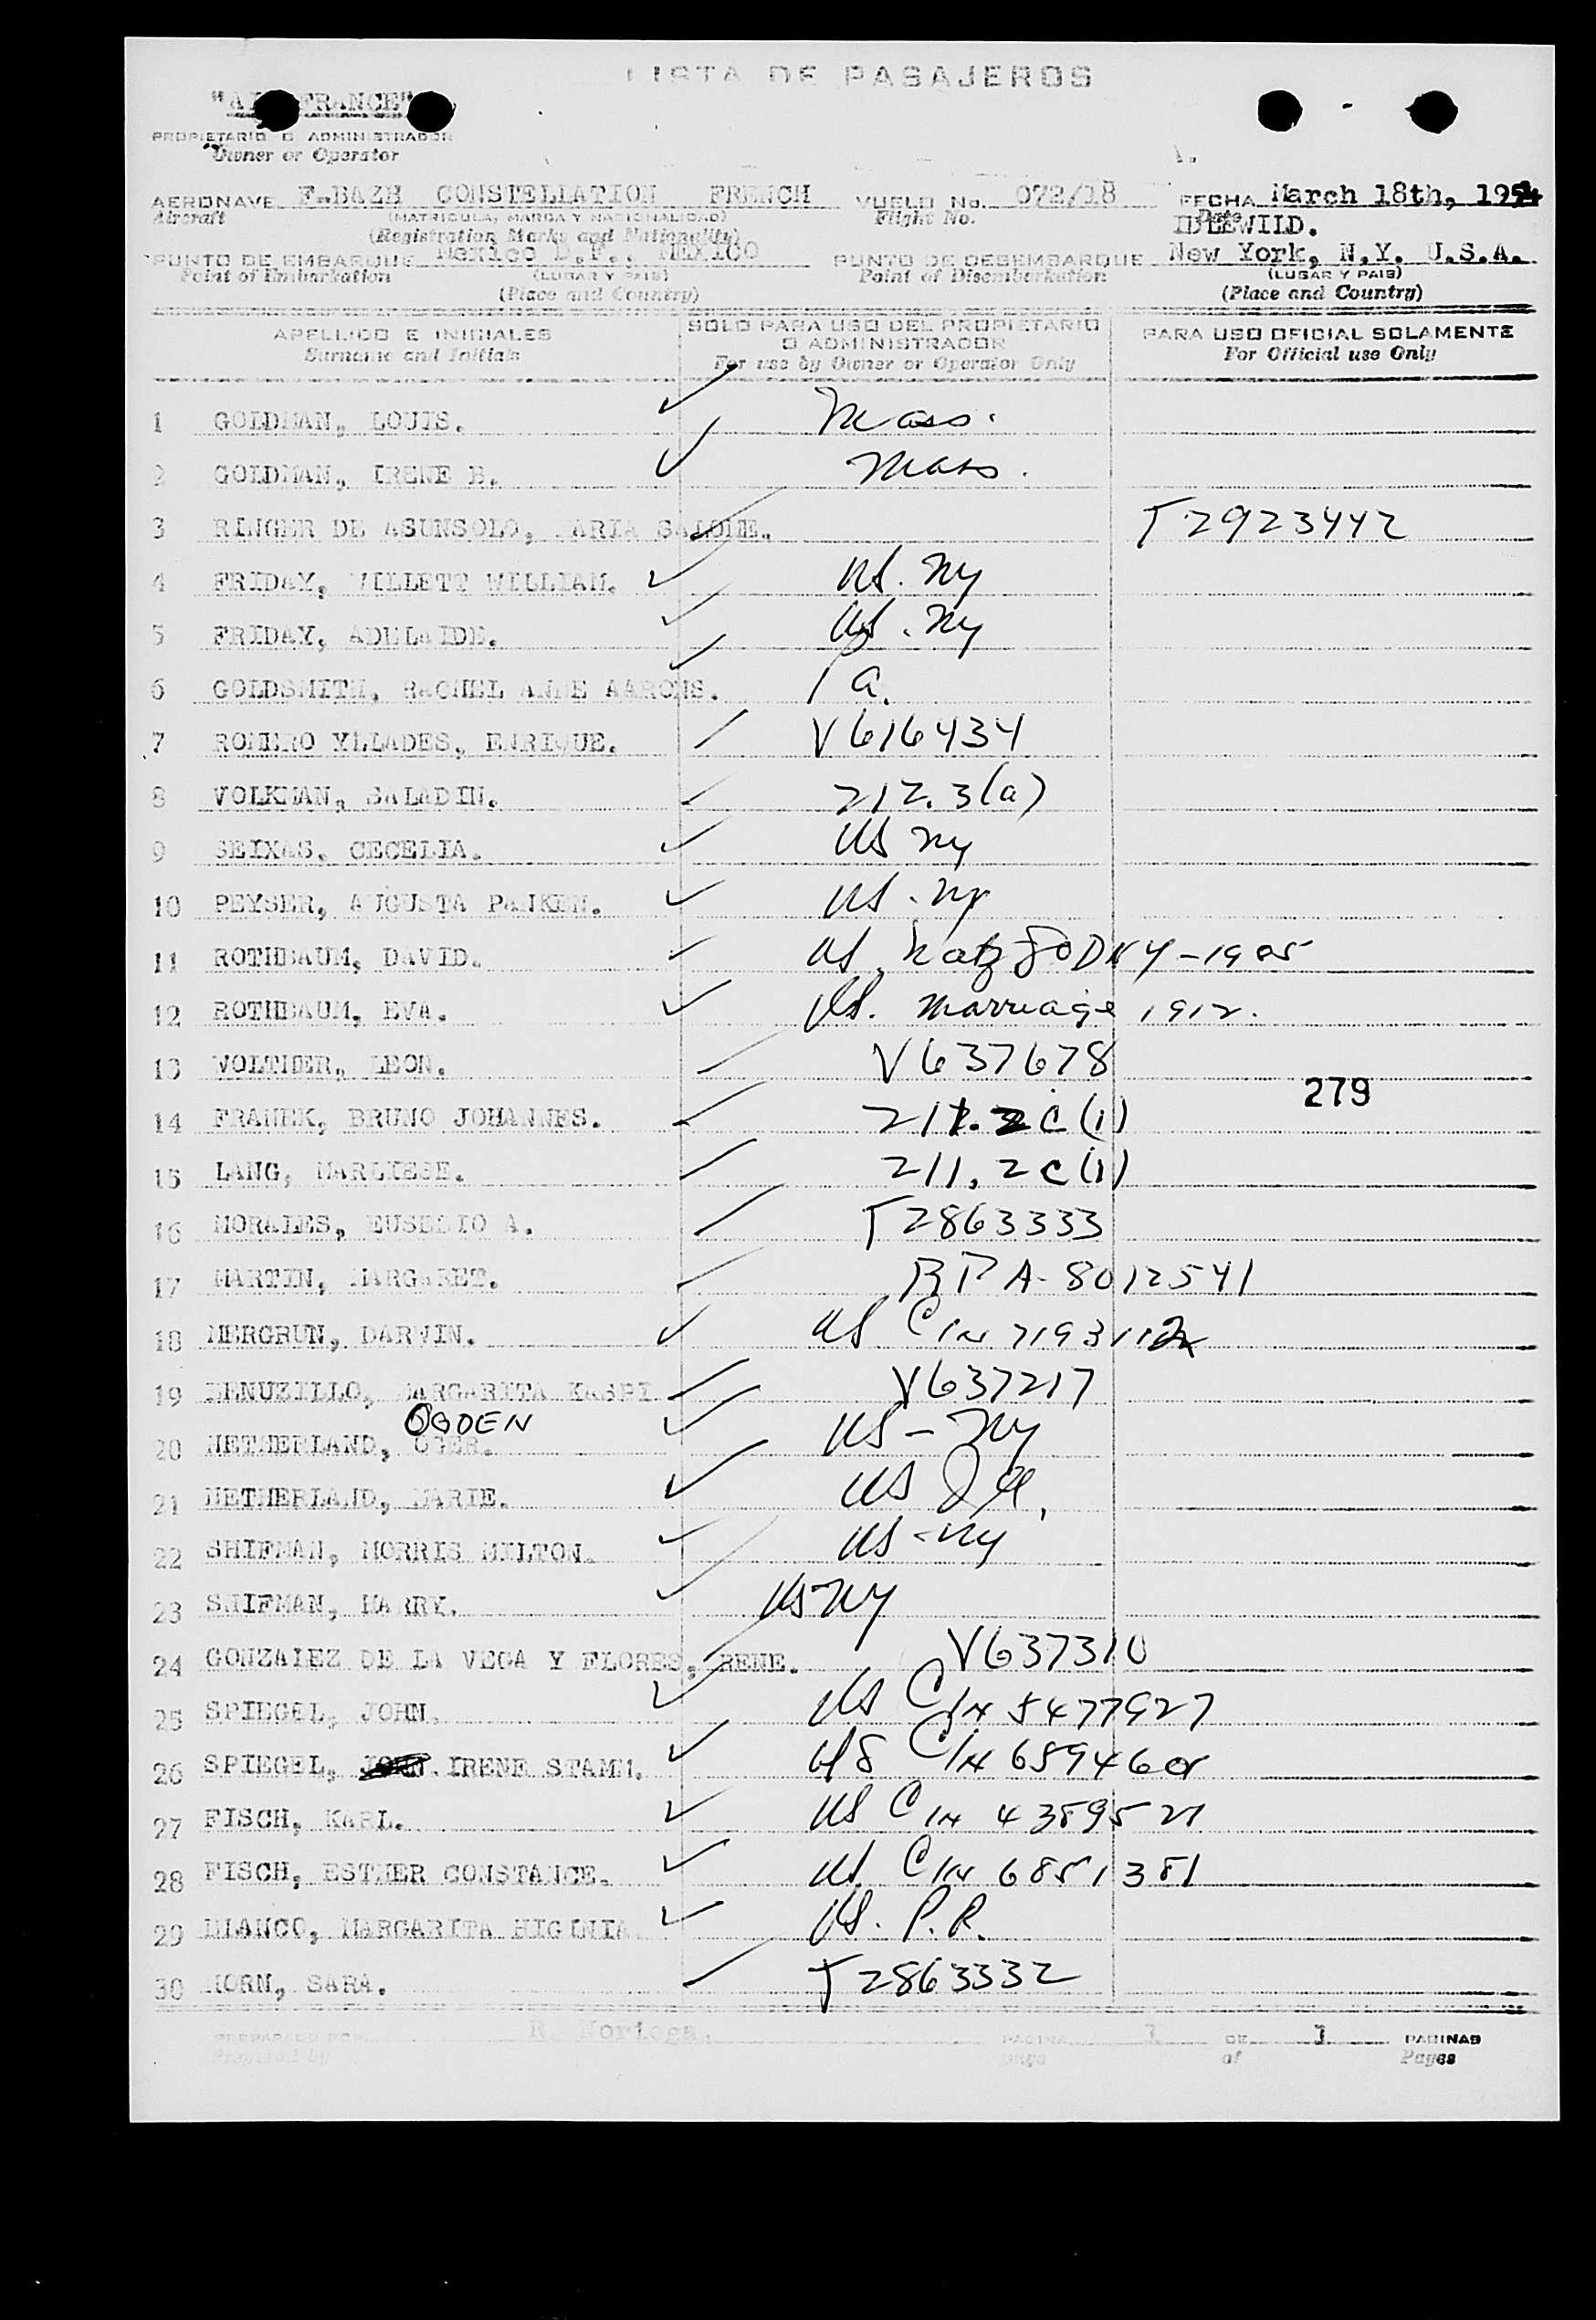 LISTA DE PASAJEROS
"AIR FRANCE"
PROPIETARIO O ADMINISTRADOR
Owner or Operator
1.
AERONAVE F-BAZH CONSTELLATION FRENCH VUELO No. 072/18 FECHA March 18th, 1954
Aircraft (MATRICULA, MARCA Y NACIONALIDAD) Flight No. Date
(Registration Marks and Nationality) IDLEWILD.
PUNTO DE EMBARQUE Mexico D.F., MEXICO PUNTO DE DESEMBARQUE New York, N.Y. U.S.A.
Point of Embarkation (LUGAR Y PAIS) Point of Disembarkation (LUGAR Y PAIS)
(Place and Country) (Place and Country)
APELLIDO E INICIALES SOLO PARA USO DEL PROPIETARIO O ADMINISTRADOR PARA USO OFICIAL SOLAMENTE
Surname and Initials For use by Owner or Operator Only For Official use Only
1 GOLDMAN, LOUIS. ✓ Mass.
2 GOLDMAN, IRENE B. ✓ Mass.
3 RINGER DE ASUNSOLO, MARIA SALOME. T2923442
4 FRIDAY, WILLETT WILLIAM. ✓ US. NY
5 FRIDAY, ADELAIDE. ✓ US. NY
6 GOLDSMITH, RACHEL ANNE AARONS. ✓
7 ROMERO YLLADES, ENRIQUE. V616434
8 VOLKMAN, SALADIN. ✓ 212.3(a)
9 SEIXAS, CECELIA. ✓ US NY
10 PEYSER, AUGUSTA PANKEN. ✓ US. NY
11 ROTHBAUM, DAVID. ✓ US. Natz SDNY-1905
12 ROTHBAUM, EVA. ✓ US. Marriage 1912.
13 VOLTHER, LEON. V637678
279
14 FRANEK, BRUNO JOHANNES. 211.2C(1)
15 LANG, MARLIESE. 211.2C(1)
16 MORALES, EUSEBIO A. T2863333
17 MARTIN, MARGARET. RP A-8012541
18 MERGRUN, DARWIN. ✓ US C/N 7193112
19 MARGARITA V637217
OGDEN
20 NETHERLAND, OGER. ✓ US-NY
21 NETHERLAND, MARIE. ✓ US
22 SHIFMAN, MORRIS MILTON. ✓ US-NY
23 SHIFMAN, HARRY. ✓ US NY
24 GONZALEZ DE LA VEGA Y FLORES, RENE. V637310
25 SPIEGEL, JOHN. ✓ US C/N 5477927
26 SPIEGEL, IRENE STAMM. ✓ US C/N
27 FISCH, KARL. ✓ US C/N
28 FISCH, ESTHER CONSTANCE. ✓ US. C/N 6851381
29 BLANCO, MARGARITA HIGINIA ✓ US. P.R.
30 HORN, SARA. T2863332
PREPARADO POR R. Noriega. PAGINA 1 DE 1 PAGINAS
Prepared by page of Pages